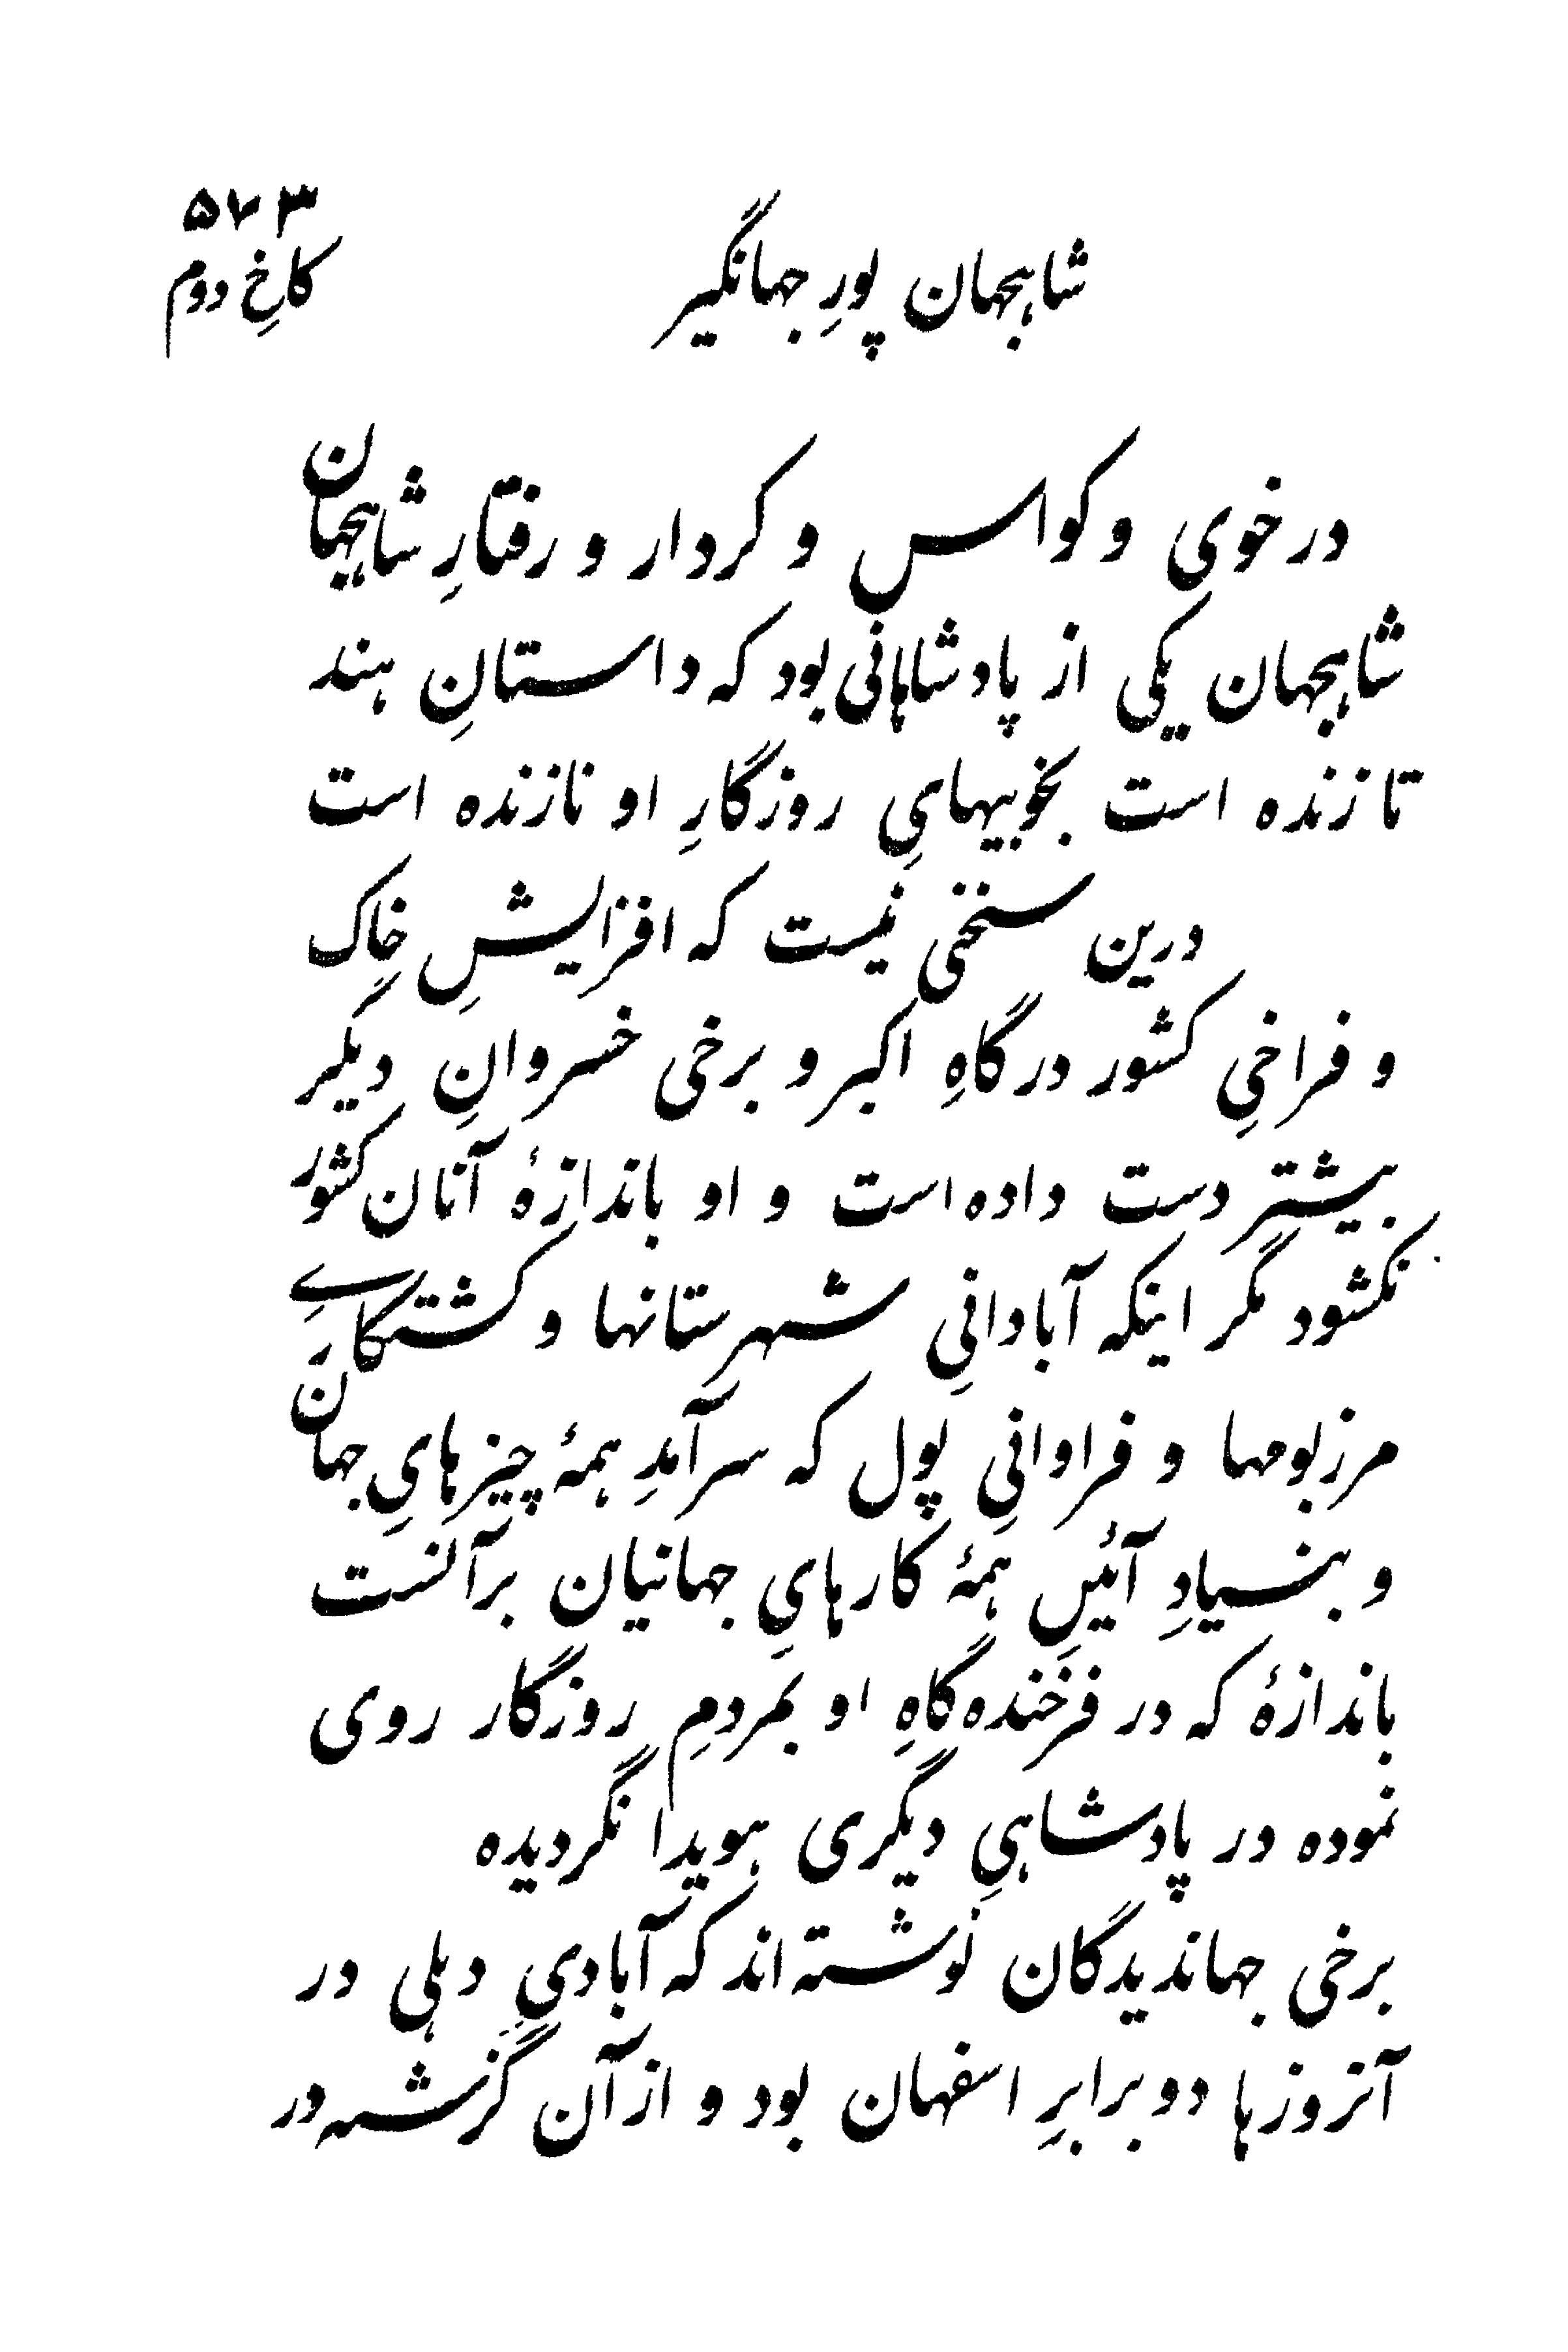 ۵۷۳
شاهجهان پورِ جهانگیر
کاخِ دوم
در خوی و کواس و کردار و رفتارِ شاهجهان
شاهجهان یکی از پادشاهانی بود که داستانِ هند
تا زنده است بخوبیهایِ روزگارِ او نازنده است
درین سخنی نیست که افزایشِ خاک
و فراخیِ کشور در گاهِ اکبر و برخی خسروانِ دیگر
بیشتر دست داده است و او باندازهٔ آنان کشور
نکشود مگر اینکه آبادانیِ شهرستانها و کشتکاریِ
مرزبومها و فراوانیِ پول که سرآمدِ همهٔ چیزهایِ جهان
و بنیادِ آئینِ همهٔ کارهایِ جهانیان برآنست
باندازهٔ که در فرخنده گاهِ او بمردمِ روزگار روی
نموده در پادشاهیِ دیگری هویدا نگردیده
برخی جهاندیدگان نوشته‌اند که آبادیِ دهلی در
آنروزها دو برابرِ اسفهان بود و از آن گزشته در